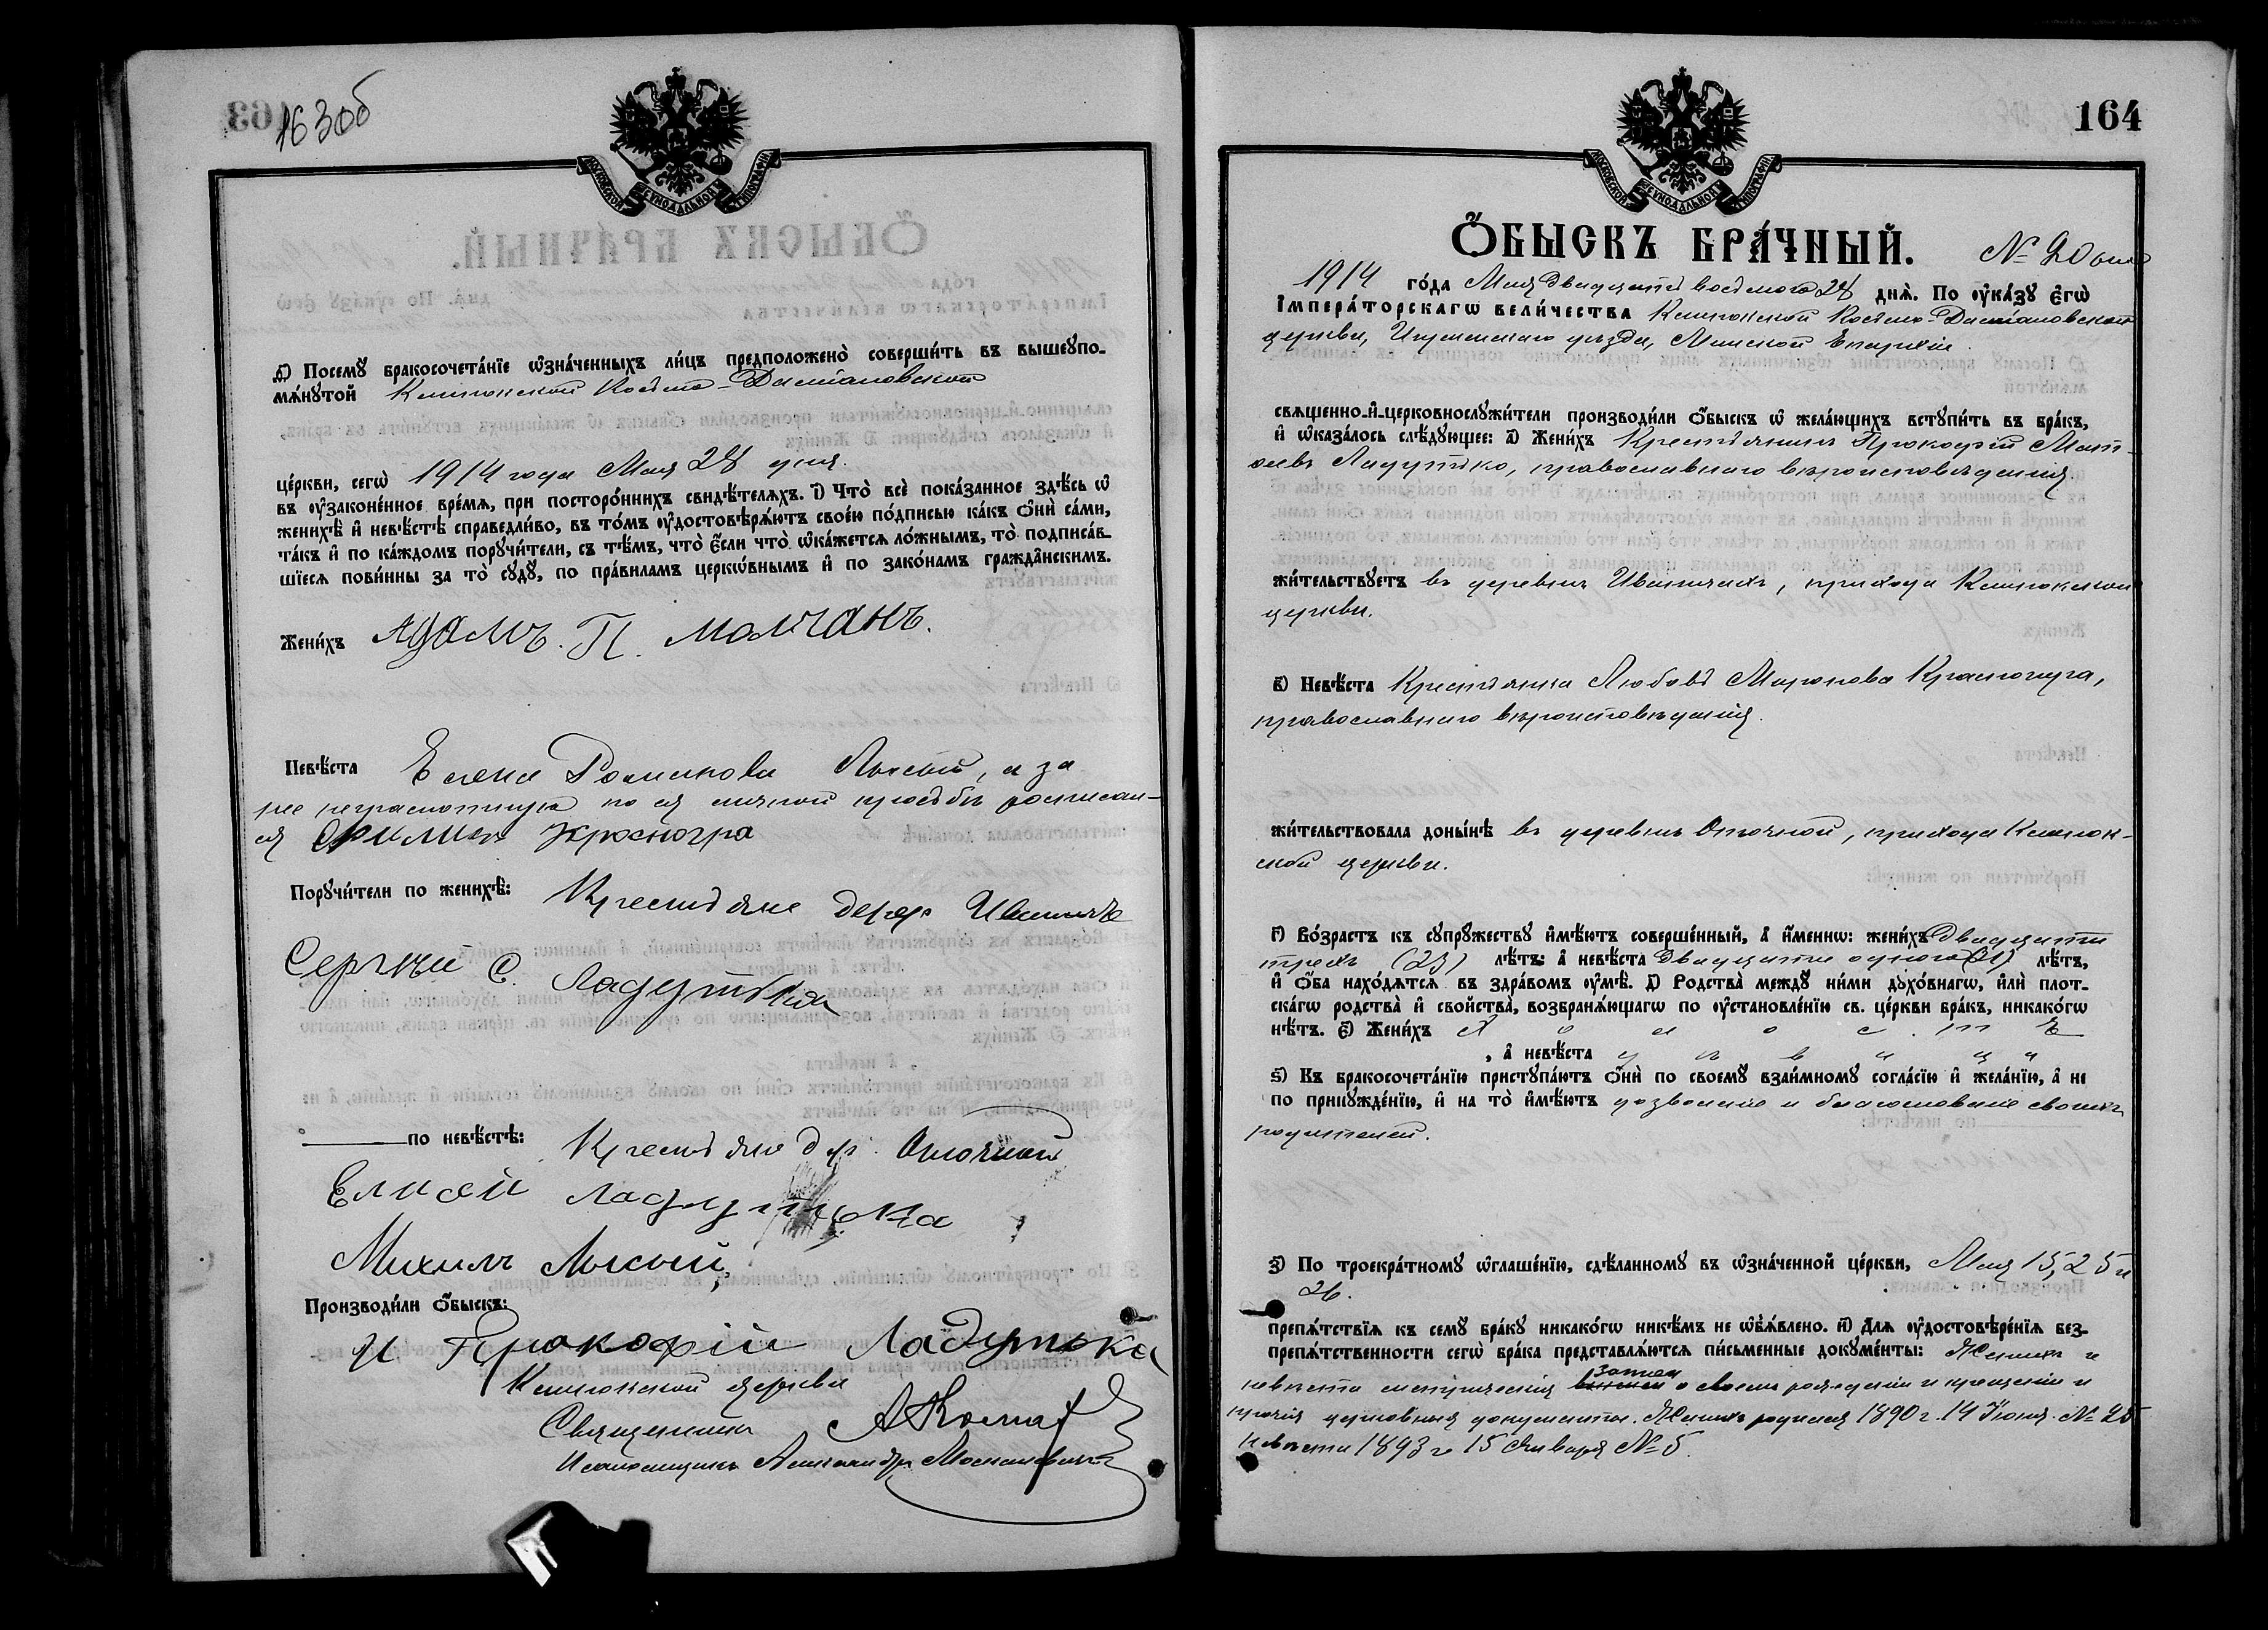 163об
МОСКОВСКОЙ СѴНОДАЛЬНОЙ ТИПОГРАФІИ
д҃) Посемꙋ бракосочета́нїе ѡ҆зна́ченныхъ ли́цъ предположено̀ соверши́ть въ вышеꙋпо-
мѧ́нꙋтой Клинокской Космо-Даміановской
це́ркви, сегѡ̀ 1914 года Мая 28 дня.
въ ᲂу҆законе́нное вре́мѧ, при посторо́ннихъ свидѣ́телѧхъ. і҃) Что̀ всѐ пока́занное здѣ́сь ѡ҆
женихѣ̀ и҆ невѣ́стѣ справедли́во, въ то́мъ ᲂу҆достовѣрѧ́ютъ свое́ю по́дписью ка́къ ѻ҆нѝ са́ми,
та́къ и҆ по ка́ждомъ порꙋчи́тели, съ тѣ́мъ, что̀ є҆́сли что̀ ѡ҆ка́жетсѧ ло́жнымъ, то̀ подписа́в-
шїесѧ пови́нны за то̀ сꙋдꙋ̀, по пра́виламъ церкѡ́внымъ и҆ по зако́намъ гражда̂нскимъ.
Жени́хъ Адамъ. П. Молчанъ.
Невѣ́ста Елена Романова Лысый, а за
нее неграмотную по ея личной просьбѣ росписал-
ся Филипъ Красногра
Порꙋчи́тели по женихѣ̀: Крестьяне дер. Иваничъ
Сергѣй С. Ладутька
по невѣ́стѣ: Крестьяне дер. Оточной
Елисей Ладутька
Михаилъ Лысый,
Производи́ли ѻ҆́быскъ:
и Прокофій Ладутька
Клинокской церкви
Священникъ А Кома
Псаломщикъ Александръ
164
МОСКОВСКОЙ СѴНОДАЛЬНОЙ ТИПОГРАФІИ
Ѻ҆́БЫСКЪ БРА́ЧНЫЙ. № 20
1914 го́да Мая двадцать восьмого 28 днѧ̀. По ᲂу҆ка́зꙋ є҆гѡ̀
І҆мпера́торскагѡ вели́чества Клинокской Космо-Даміановской
церкви, Игуменскаго уѣзда, Минской Епархіи.
свѧщенно-и҆-церковнослꙋжи́тели производи́ли ѻ҆́быскъ ѡ҆ жела́ющихъ встꙋпи́ть въ бра́къ,
и҆ ѡ҆каза́лось слѣ́дꙋющее: а҃) Жени́хъ Крестьянинъ Прокофій Мат-
ѳеевъ Ладутько, православнаго вѣроисповѣданія
жи́тельствꙋетъ въ деревнѣ Иваничахъ, прихода Клинокской
церкви.
в҃) Невѣ́ста Крестьянка Любовь Миронова Красногира,
православнаго вѣроисповѣданія.
жи́тельствовала доны́нѣ въ деревнѣ Оточной, прихода Клинок-
ской церкви.
г҃) Во́зрастъ къ сꙋпрꙋ́жествꙋ и҆мѣ́ютъ соверше́нный, а҆ и҆́меннѡ: жени́хъ двадцати
трехъ (23) лѣ́тъ: а҆ невѣ́ста двадцати одного (21) лѣ́тъ,
и҆ ѻ҆́ба нахо́дѧтсѧ въ здра́вомъ ᲂу҆мѣ̀. д҃) Родства̀ междꙋ ни́ми дꙋхо́внагѡ, и҆лѝ плот-
ска́гѡ родства̀ и҆ свойства̀, возбранѧ́ющагѡ по ᲂу҆становле́нїю св. це́ркви бра́къ, никако́гѡ
нѣ́тъ. є҃) Жени́хъ х о л о с т ъ
, а҆ невѣ́ста д ѣ в и ц а
ѕ҃) Къ бракосочета́нїю пристꙋпа́ютъ ѻ҆нѝ по своемꙋ̀ взаи́мномꙋ согла́сїю и҆ жела́нїю, а҆ не
по принꙋжде́нїю, и҆ на то̀ и҆мѣ́ютъ дозволеніе и благословеніе своихъ
родителей.
з҃) По троекра́тномꙋ ѡ҆глаше́нїю, сдѣ́ланномꙋ въ ѡ҆зна́ченной це́ркви, Мая 15, 25 и
26.
препѧ́тствїѧ къ семꙋ̀ бра́кꙋ никако́гѡ никѣ́мъ не ѡ҆б̾ѧ́влено. и҃) Длѧ ᲂу҆достовѣре́нїѧ без-
препѧ́тственности сегѡ̀ бра́ка представлѧ́ютсѧ пи́сьменные докꙋме́нты: Жениха и
невѣсты метрическія записи о своемъ рожденіи и крещеніи и
прочія церковныя документы. Женихъ родился 1890 г. 14 Іюня № 25
невѣста 1893 г 15 января № 5.